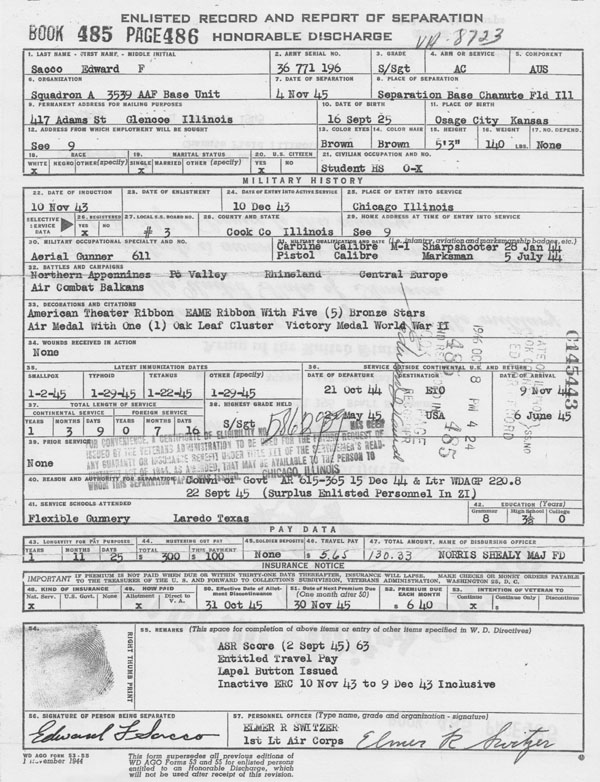 ENLISTED RECORD AND REPORT OF SEPARATION
BOOK 485 PAGE 486 HONORABLE DISCHARGE
1. LAST NAME - FIRST NAME - MIDDLE INITIAL 2. ARMY SERIAL NO. 3. GRADE 4. ARM OR SERVICE 5. COMPONENT
Sacco Edward F 36 771 196 S/Sgt AC AUS
6. ORGANIZATION 7. DATE OF SEPARATION 8. PLACE OF SEPARATION
Squadron A 3539 AAF Base Unit 4 Nov 45 Separation Base Chamute Fld Ill
9. PERMANENT ADDRESS FOR MAILING PURPOSES 10. DATE OF BIRTH 11. PLACE OF BIRTH
417 Adams St Glencoe Illinois 16 Sept 25 Osage City Kansas
12. ADDRESS FROM WHICH EMPLOYMENT WILL BE SOUGHT 13. COLOR EYES 14. COLOR HAIR 15. HEIGHT 16. WEIGHT 17. NO. DEPEND.
See 9 Brown Brown 5'3" 140 LBS. None
18. RACE 19. MARITAL STATUS 20. U.S. CITIZEN 21. CIVILIAN OCCUPATION AND NO.
WHITE NEGRO OTHER (specify) SINGLE MARRIED OTHER (specify) YES NO
x x x Student HS O-X
MILITARY HISTORY
22. DATE OF INDUCTION 23. DATE OF ENLISTMENT 24. DATE OF ENTRY INTO ACTIVE SERVICE 25. PLACE OF ENTRY INTO SERVICE
10 Nov 43 10 Dec 43 Chicago Illinois
SELECTIVE SERVICE DATA 26. REGISTERED YES NO 27. LOCAL S.S. BOARD NO. 28. COUNTY AND STATE 29. HOME ADDRESS AT TIME OF ENTRY INTO SERVICE
x # 3 Cook Co Illinois See 9
30. MILITARY OCCUPATIONAL SPECIALTY AND NO. 31. MILITARY QUALIFICATION AND DATE (i.e., infantry, aviation and marksmanship badges, etc.)
Carbine Calibre M-1 Sharpshooter 28 Jan 44
Aerial Gunner 611 Pistol Calibre Marksman 5 July 44
32. BATTLES AND CAMPAIGNS
Northern Appennines Po Valley Rhineland Central Europe
Air Combat Balkans
33. DECORATIONS AND CITATIONS
American Theater Ribbon EAME Ribbon With Five (5) Bronze Stars
Air Medal With One (1) Oak Leaf Cluster Victory Medal World War II
34. WOUNDS RECEIVED IN ACTION
None
35. LATEST IMMUNIZATION DATES 36. SERVICE OUTSIDE CONTINENTAL U.S. AND RETURN
SMALLPOX TYPHOID TETANUS OTHER (specify) DATE OF DEPARTURE DESTINATION DATE OF ARRIVAL
1-2-45 1-29-45 1-22-45 1-29-45 21 Oct 44 ETO 9 Nov 44
37. TOTAL LENGTH OF SERVICE 38. HIGHEST GRADE HELD
CONTINENTAL SERVICE FOREIGN SERVICE
YEARS MONTHS DAYS YEARS MONTHS DAYS
1 3 9 0 7 16 S/Sgt May 45 USA 6 June 45
39. PRIOR SERVICE
None
CHICAGO, ILLINOIS
40. REASON AND AUTHORITY FOR SEPARATION Conv of Govt AR 615-365 15 Dec 44 & Ltr WDAGP 220.8
22 Sept 45 (Surplus Enlisted Personnel In ZI)
41. SERVICE SCHOOLS ATTENDED 42. EDUCATION (Years)
Grammar High School College
Flexible Gunnery Laredo Texas 8 3½ 0
PAY DATA
43. LONGEVITY FOR PAY PURPOSES 44. MUSTERING OUT PAY 45. SOLDIER DEPOSITS 46. TRAVEL PAY 47. TOTAL AMOUNT, NAME OF DISBURSING OFFICER
YEARS MONTHS DAYS TOTAL THIS PAYMENT
1 11 25 $ 300 $ 100 None $ 5.65 130.33 NORRIS SHEALY MAJ FD
INSURANCE NOTICE
IMPORTANT IF PREMIUM IS NOT PAID WHEN DUE OR WITHIN THIRTY-ONE DAYS THEREAFTER, INSURANCE WILL LAPSE. MAKE CHECKS OR MONEY ORDERS PAYABLE
TO THE TREASURER OF THE U. S. AND FORWARD TO COLLECTIONS SUBDIVISION, VETERANS ADMINISTRATION, WASHINGTON 25, D. C.
48. KIND OF INSURANCE 49. HOW PAID 50. Effective Date of Allotment Discontinuance 51. Date of Next Premium Due (One month after 50) 52. PREMIUM DUE EACH MONTH 53. INTENTION OF VETERAN TO
Nat. Serv. U.S. Govt. None Allotment Direct to V. A. Continue Continue Only Discontinue
x x 31 Oct 45 30 Nov 45 $ 6 40 x
54. RIGHT THUMB PRINT 55. REMARKS (This space for completion of above items or entry of other items specified in W. D. Directives)
ASR Score (2 Sept 45) 63
Entitled Travel Pay
Lapel Button Issued
Inactive ERC 10 Nov 43 to 9 Dec 43 Inclusive
56. SIGNATURE OF PERSON BEING SEPARATED 57. PERSONNEL OFFICER (Type name, grade and organization - signature)
Edward F Sacco ELMER R SWITZER
1st Lt Air Corps Elmer R Switzer
WD AGO FORM 53-55
1 November 1944
This form supersedes all previous editions of
WD AGO Forms 53 and 55 for enlisted persons
entitled to an Honorable Discharge, which
will not be used after receipt of this revision.